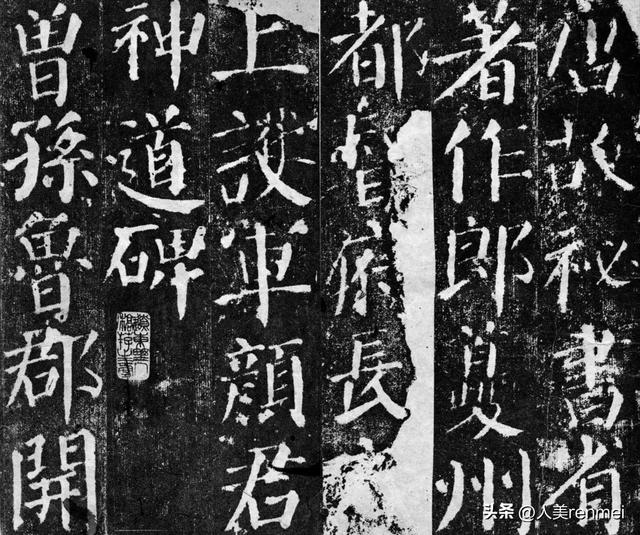 唐故祕書省
著作郎夔州
都督府長
上護軍顏君
神道碑
曾孫魯郡開
头条 @人美renmei